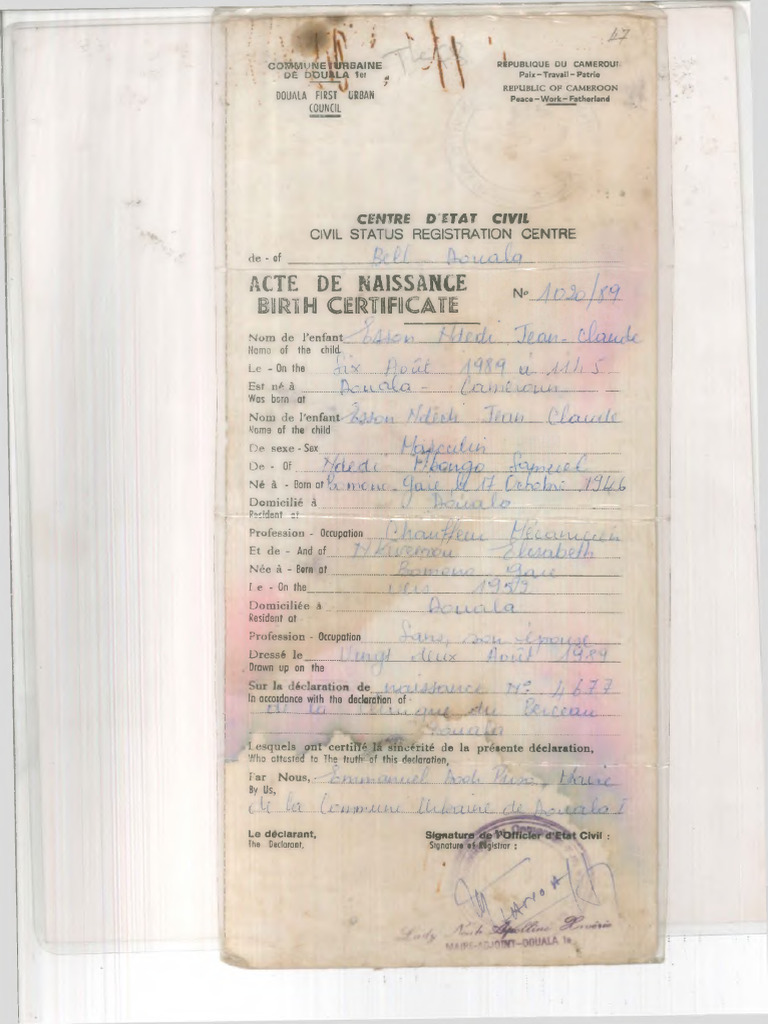 47
COMMUNE URBAINE
DE DOUALA 1er
DOUALA FIRST URBAN
COUNCIL
REPUBLIQUE DU CAMEROUN
Paix - Travail - Patrie
REPUBLIC OF CAMEROON
Peace - Work - Fatherland
CENTRE D'ETAT CIVIL
CIVIL STATUS REGISTRATION CENTRE
de - of Bell Douala
ACTE DE NAISSANCE
BIRTH CERTIFICATE
No 1020/89
Nom de l'enfant Esson Ndedi Jean-Claude
Name of the child
Le - On the Six Août 1989 à 11h5
Est né à Douala - Cameroun
Was born at
Nom de l'enfant Esson Ndedi Jean Claude
Name of the child
De sexe - Sex Masculin
De - Of Ndedi Mbongo Samuel
Né à - Born at Bomono Gare le 17 Octobre 1946
Domicilié à Douala
Resident at
Profession - Occupation Chauffeur Mécanicien
Et de - And of Elisabeth
Née à - Born at Bomono Gare
Le - On the vers 1959
Domiciliée à Douala
Resident at
Profession - Occupation Sans, son épouse
Dressé le Vingt deux Août 1989
Drawn up on the
Sur la déclaration de naissance No 4677
In accordance with the declaration of
de la Clinique du Berceau
Douala
Lesquels ont certifié la sincérité de la présente déclaration,
Who attested to The truth of this declaration,
Par Nous, Emmanuel Maire
By Us,
de la Commune Urbaine de Douala I
Le déclarant,
The Declarant,
Signature de l'Officier d'Etat Civil :
Signature of Registrar :
Lady Apolline
MAIRE-ADJOINT-DOUALA 1e